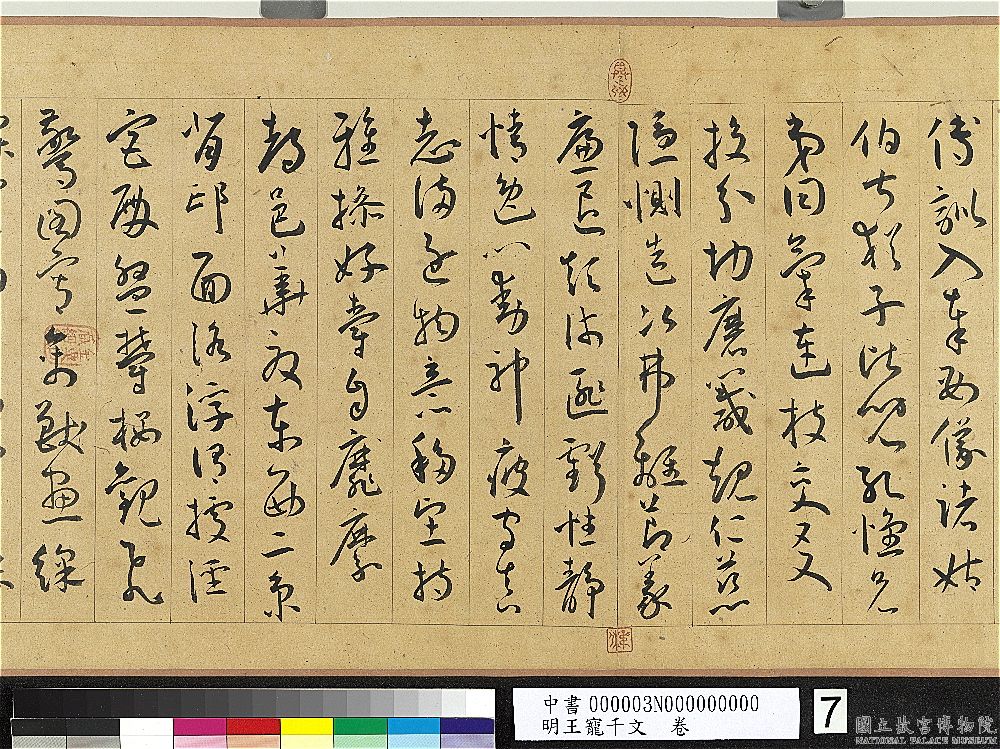 傅訓入奉母儀諸姑
伯叔猶子比兒孔懷兄
弟同氣連枝交友
投分切磨箴規仁慈
隱惻造次弗離節義
廉退顛沛匪虧性靜
情逸心動神疲守真
志滿逐物意移堅持
雅操好爵自靡縻
都邑華夏東西二京
背邙面洛浮渭據涇
宮殿盤鬱樓觀飛
驚圖寫禽獸畫綵
中書 000003N000000000
明王寵千文 卷
7
國立故宮博物院
NATIONAL PALACE MUSEUM